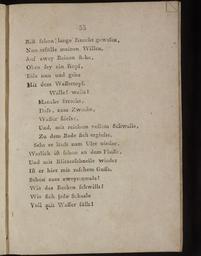 53
Bist schon lange Knecht gewesen,
Nun erfülle meinen Willen,
Auf zwey Beinen stehe,
Oben sey ein Kopf,
Eile nun und gehe
Mit dem Wassertopf.
Walle! walle!
Manche Strecke,
Daß, zum Zwecke,
Wasser fließe,
Und, mit reichem vollem Schwalle,
Zu dem Bade sich ergieße.
Seht er läuft zum Ufer nieder,
Wahrlich ist schon an dem Flusse,
Und mit Blitzesschnelle wieder
Ist er hier mit raschem Gusse.
Schon zum zweytenmale!
Wie das Becken schwillt!
Wie sich jede Schaale
Voll mit Wasser füllt!